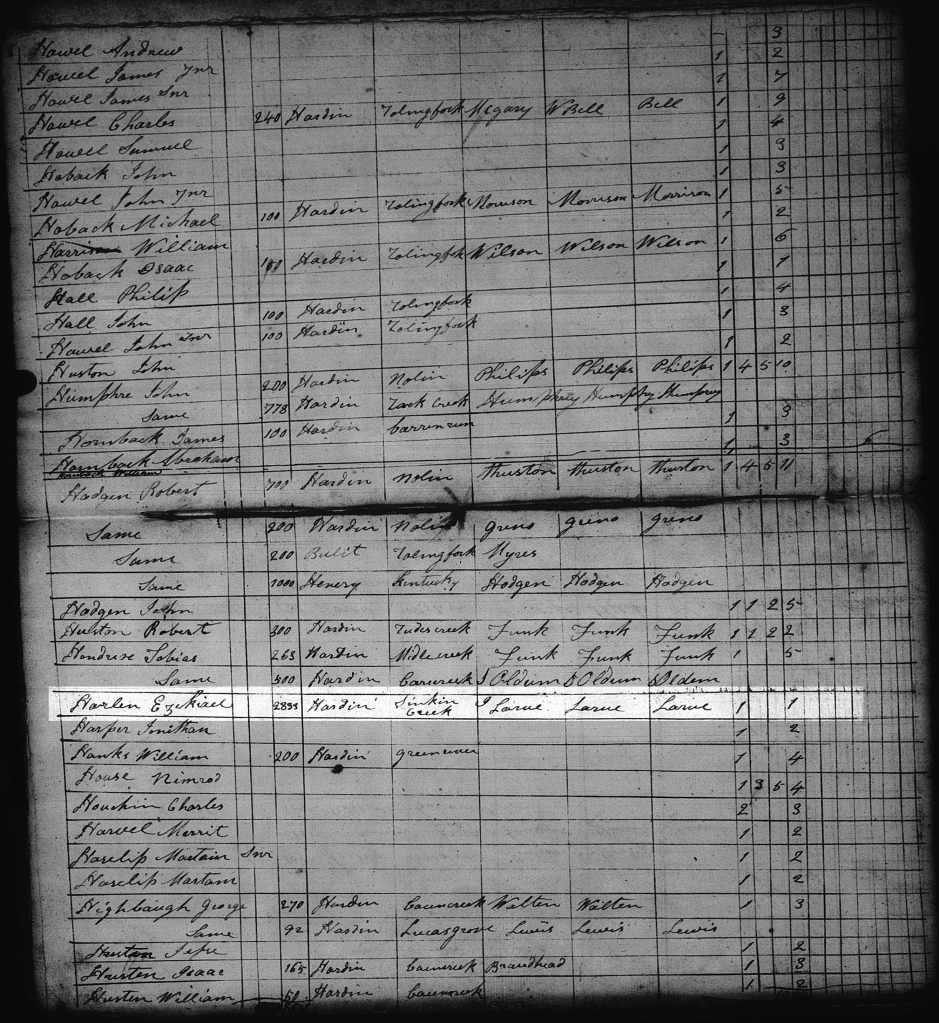 Howel Andrew 3
Howel James Jnr 1 2
Howel James Snr 1 7
Howel Charles 240 Hardin Rolingfork Megary W Bell Bell 1 9
Howel Samuel 1 4
Hoback John 1 3
Howel John Jnr 1 3
Hoback Michael 100 Hardin Rolingfork Morrison Morrison Morrison 1 5
Harrison William 1 2
Hoback Isaac 101 Hardin Rolingfok Wilson Wilson Wilson 1 6
Hall Philip 1 1
Hall John 100 Hardin Rolingfork 4
Howel John Snr 100 Hardin Rolingfork 1 3
Huston John 1 2
Humphre John 200 Hardin Nolin Philips Philips Philips 1 4 5 10
Same 778 Hardin Creek Humphrey Humphry Humphry
Hornback James 100 Hardin barrenrun 1 3
Hornback Abraham 1 3
Hodgen Robert 700 Hardin Nolin thuston thuston thuston 1 4 5 11
Same 200 Hardin Nolin greno greno greno
Same 200 Bulit Rolingfork Myres
Same 1000 Henery Kentucky Hodgen Hodgen Hodgen
Hodgen John 1 1 2 5
Huston Robert 300 Hardin Rudescreek Funk Funk Funk 1 1 2 2
Hendrixe Tobias 263 Hardin Midlecreek Funk Funk Funk 1 5
Same 500 Hardin Cavecreek J Oldum Oldum Oldem
Harlen Ezekiael 2833 Hardin Sinkin Creek J Larue Larue Larue 1 1
Harper Jonithan 1 2
Hanks William 200 Hardin greenriver 1 4
House Nimrod 1 3 5 4
Houchin Charles 2 3
Harvel Merrit 1 2
Haselip Martain Snr 1 2
Haselip Martam 1 2
Highbaugh George 270 Hardin Walten Walten 1 3
Same 92 Hardin Lucasgrove Lewis Lewis Lewis
Husten 1 2
Husten Isaac 165 Hardin Broadhead 1 3
Husten William 51 Hardin 1 2